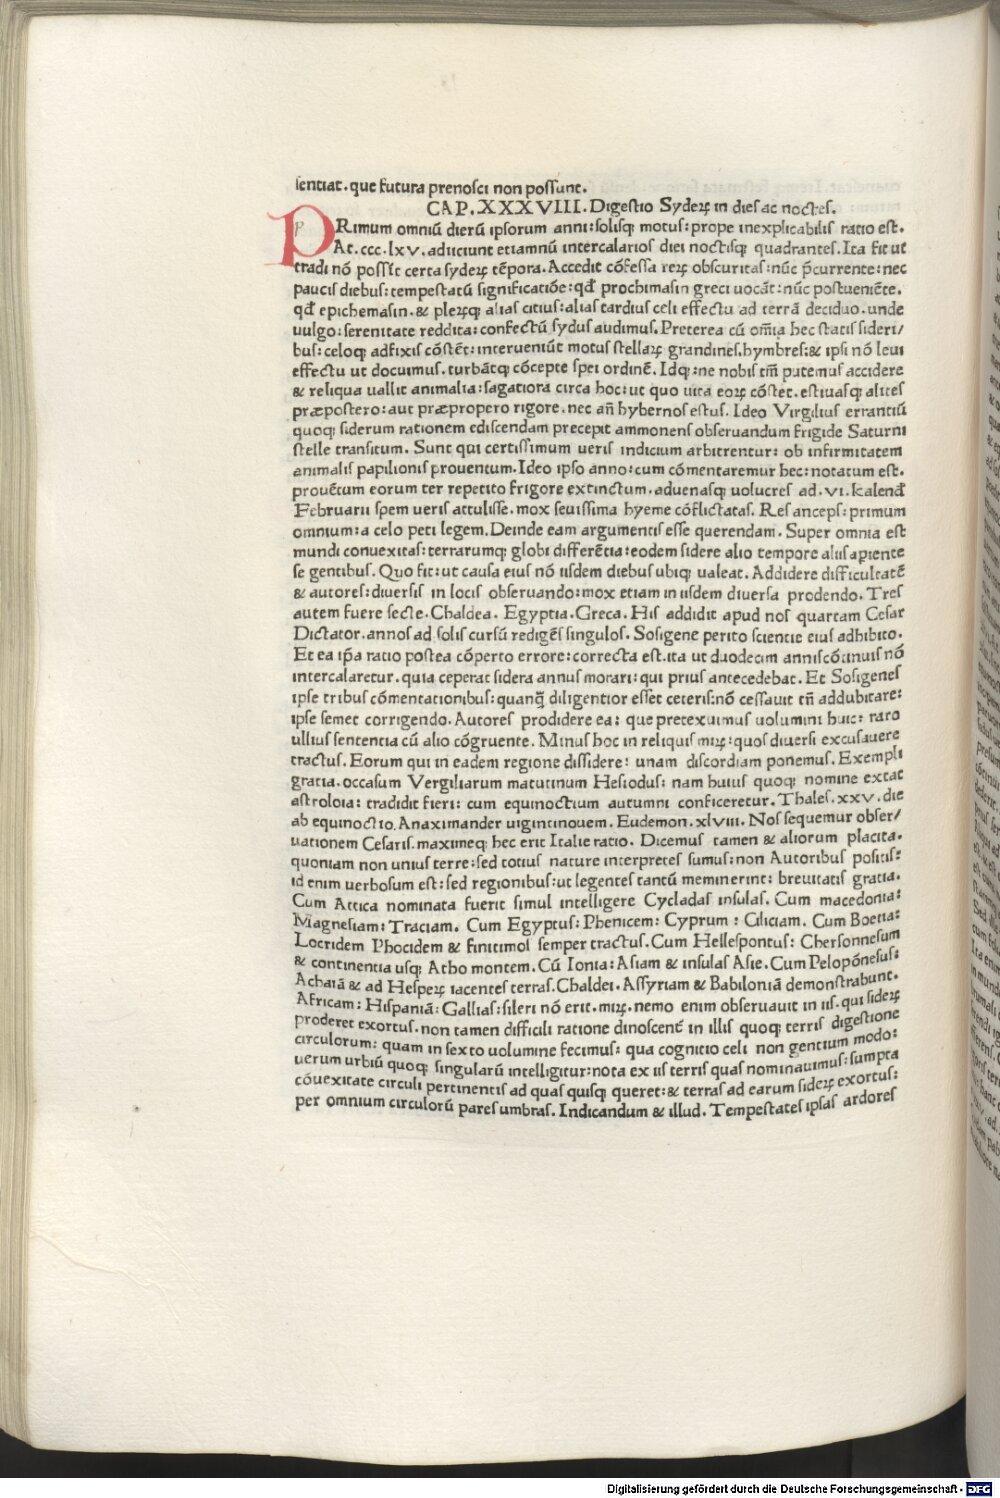 sentiat. que futura prenosci non possunt.
CAP. XXXVIII. Digestio Syderꝝ in dies ac noctes.
PRimum omniū dierū ipsorum anni: solisqꝫ motus: prope inexplicabilis ratio est.
At. ccc. lxv. adiiciunt etiamnū intercalarios diei noctisqꝫ quadrantes. Ita fit ut
tradi nō possīt certa syderꝝ tēpora. Accedit cōfessa rerꝝ obscuritas: nūc p̄currente: nec
paucis diebus: tempestatū significatiōe: qđ prochimasin greci uocāt: nūc postueniēte.
qđ epichemasin. & plerꝝqꝫ alias citius: alias tardius celi effectu ad terrā deciduo. unde
uulgo: serenitate reddita: confectū sydus audimus. Preterea cū oīa hec statis sideri/
bus: celoqꝫ adfixis cōstēt: interueniūt motus stellarꝝ grandines. hymbres: & ipsi nō leui
effectu ut docuimus. turbātqꝫ cōcepte spei ordinē. Idqꝫ: ne nobis tm̄ putemus accidere
& reliqua uallit animalia: sagatiora circa hoc: ut quo uita eorꝝ cōstet. estiuasqꝫ alites
præpostero: aut præpropero rigore. nec an̄ hybernos estus. Ideo Virgilius errantiū
quoqꝫ siderum rationem ediscendam precepit ammonens obseruandum frigide Saturni
stelle transitum. Sunt qui certissimum ueris indicium arbitrentur: ob infirmitatem
animalis papilionis prouentum. Ideo ipso anno: cum cōmentaremur hec: notatum est.
prouētum eorum ter repetito frigore extinctum. aduenasqꝫ uolucres ad. vi. kalenđ
Februarii spem ueris attulisse. mox seuissima hyeme cōflictatas. Res anceps: primum
omnium: a celo peti legem. Deinde eam argumentis esse querendam. Super omnia est
mundi conuexitas: terrarumqꝫ globi differētia: eodem sidere alio tempore aliis apiente
se gentibus. Quo fit: ut causa eius nō iisdem diebus ubiqꝫ ualeat. Addidere difficultatē
& autores: diuersis in locis obseruando: mox etiam in iisdem diuersa prodendo. Tres
autem fuere secte. Chaldea. Egyptia. Greca. His addidit apud nos quartam Cesar
Dictator. annos ad solis cursū redigēs singulos. Sosigene perito scientie eius adhibito.
Et ea ip̄a ratio postea cōperto errore: correcta est. ita ut duodecim annis cōtinuis nō
intercalaretur. quia ceperat sidera annus morari: qui prius antecedebat. Et Sosigenes
ipse tribus cōmentationibus: quanqꝫ̄ diligentior esset ceteris: nō cessauit tn̄ addubitare:
ipse semet corrigendo. Autores prodidere ea: que pretexuimus uolumini huic: raro
ullius sententia cū alio cōgruente. Minus hoc in reliquis mirꝝ: quos diuersi excusauere
tractus. Eorum qui in eadem regione dissidere: unam discordiam ponemus. Exempli
gratia. occasum Vergiliarum matutinum Hesiodus: nam huius quoqꝫ nomine extat
astroloia: tradidit fieri: cum equinoctium autumni conficeretur. Thales. xxv. die
ab equinoctio. Anaximander uigintinouem. Eudemon. xlviii. Nos sequemur obser/
uationem Cesaris. maximeqꝫ hec erit Italie ratio. Dicemus tamen & aliorum placita.
quoniam non unius terre: sed totius nature interpretes sumus: non Autoribus positis:
id enim uerbosum est: sed regionibus: ut legentes tantū meminerint: breuitatis gratia.
Cum Attica nominata fuerit simul intelligere Cycladas insulas. Cum macedonia:
Magnesiam: Traciam. Cum Egyptus: Phenicem: Cyprum: Ciliciam. Cum Boetia:
Locridem Phocidem & finitimos semper tractus. Cum Hellespontus: Chersonnesum
& continentia usqꝫ Atho montem. Cū Ionia: Asiam & insulas Asie. Cum Pelopōnesus:
Achaiā & ad Hesperꝝ iacentes terras. Chaldei. Assyriam & Babiloniā demonstrabunt.
Africam: Hispaniā: Gallias: sileri nō erit. mirꝝ. nemo enim obseruauit in iis. qui siderꝝ
proderet exortus. non tamen difficili ratione dinoscent̄ in illis quoqꝫ terris digestione
circulorum: quam in sexto uolumine fecimus: qua cognitio celi non gentium modo:
uerum urbiū quoqꝫ singularū intelligitur: nota ex iis terris quas nominauimus: sumpta
cōuexitate circuli pertinentis ad quas quisqꝫ queret: & terras ad earum siderꝝ exortus:
per omnium circulorū pares umbras. Indicandum & illud. Tempestates ipsas ardores
Digitalisierung gefördert durch die Deutsche Forschungsgemeinschaft - DFG